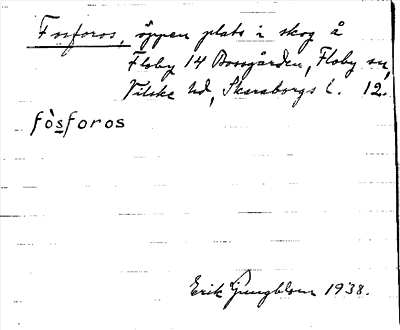 Fosforos, öppen plats i skog å
Floby 14 Bossgården, Floby sn,
Vilske hd, Skaraborgs l. 12.
fòsforos
Erik Ljungblom 1938.